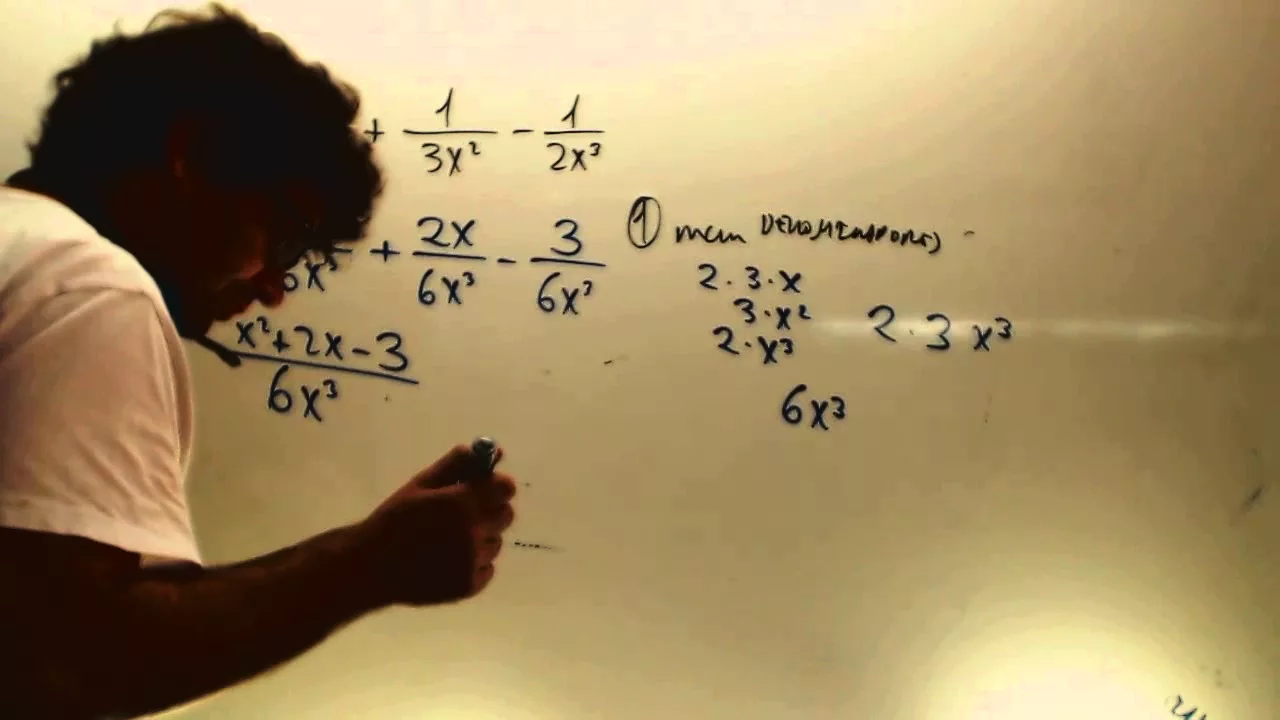 + 1/3x² - 1/2x³
6x³ + 2x/6x³ - 3/6x³
x²+2x-3/6x³
① mcm DENOMINADORES
2·3·x
3·x²
2·x³
2·3 x³
6x³